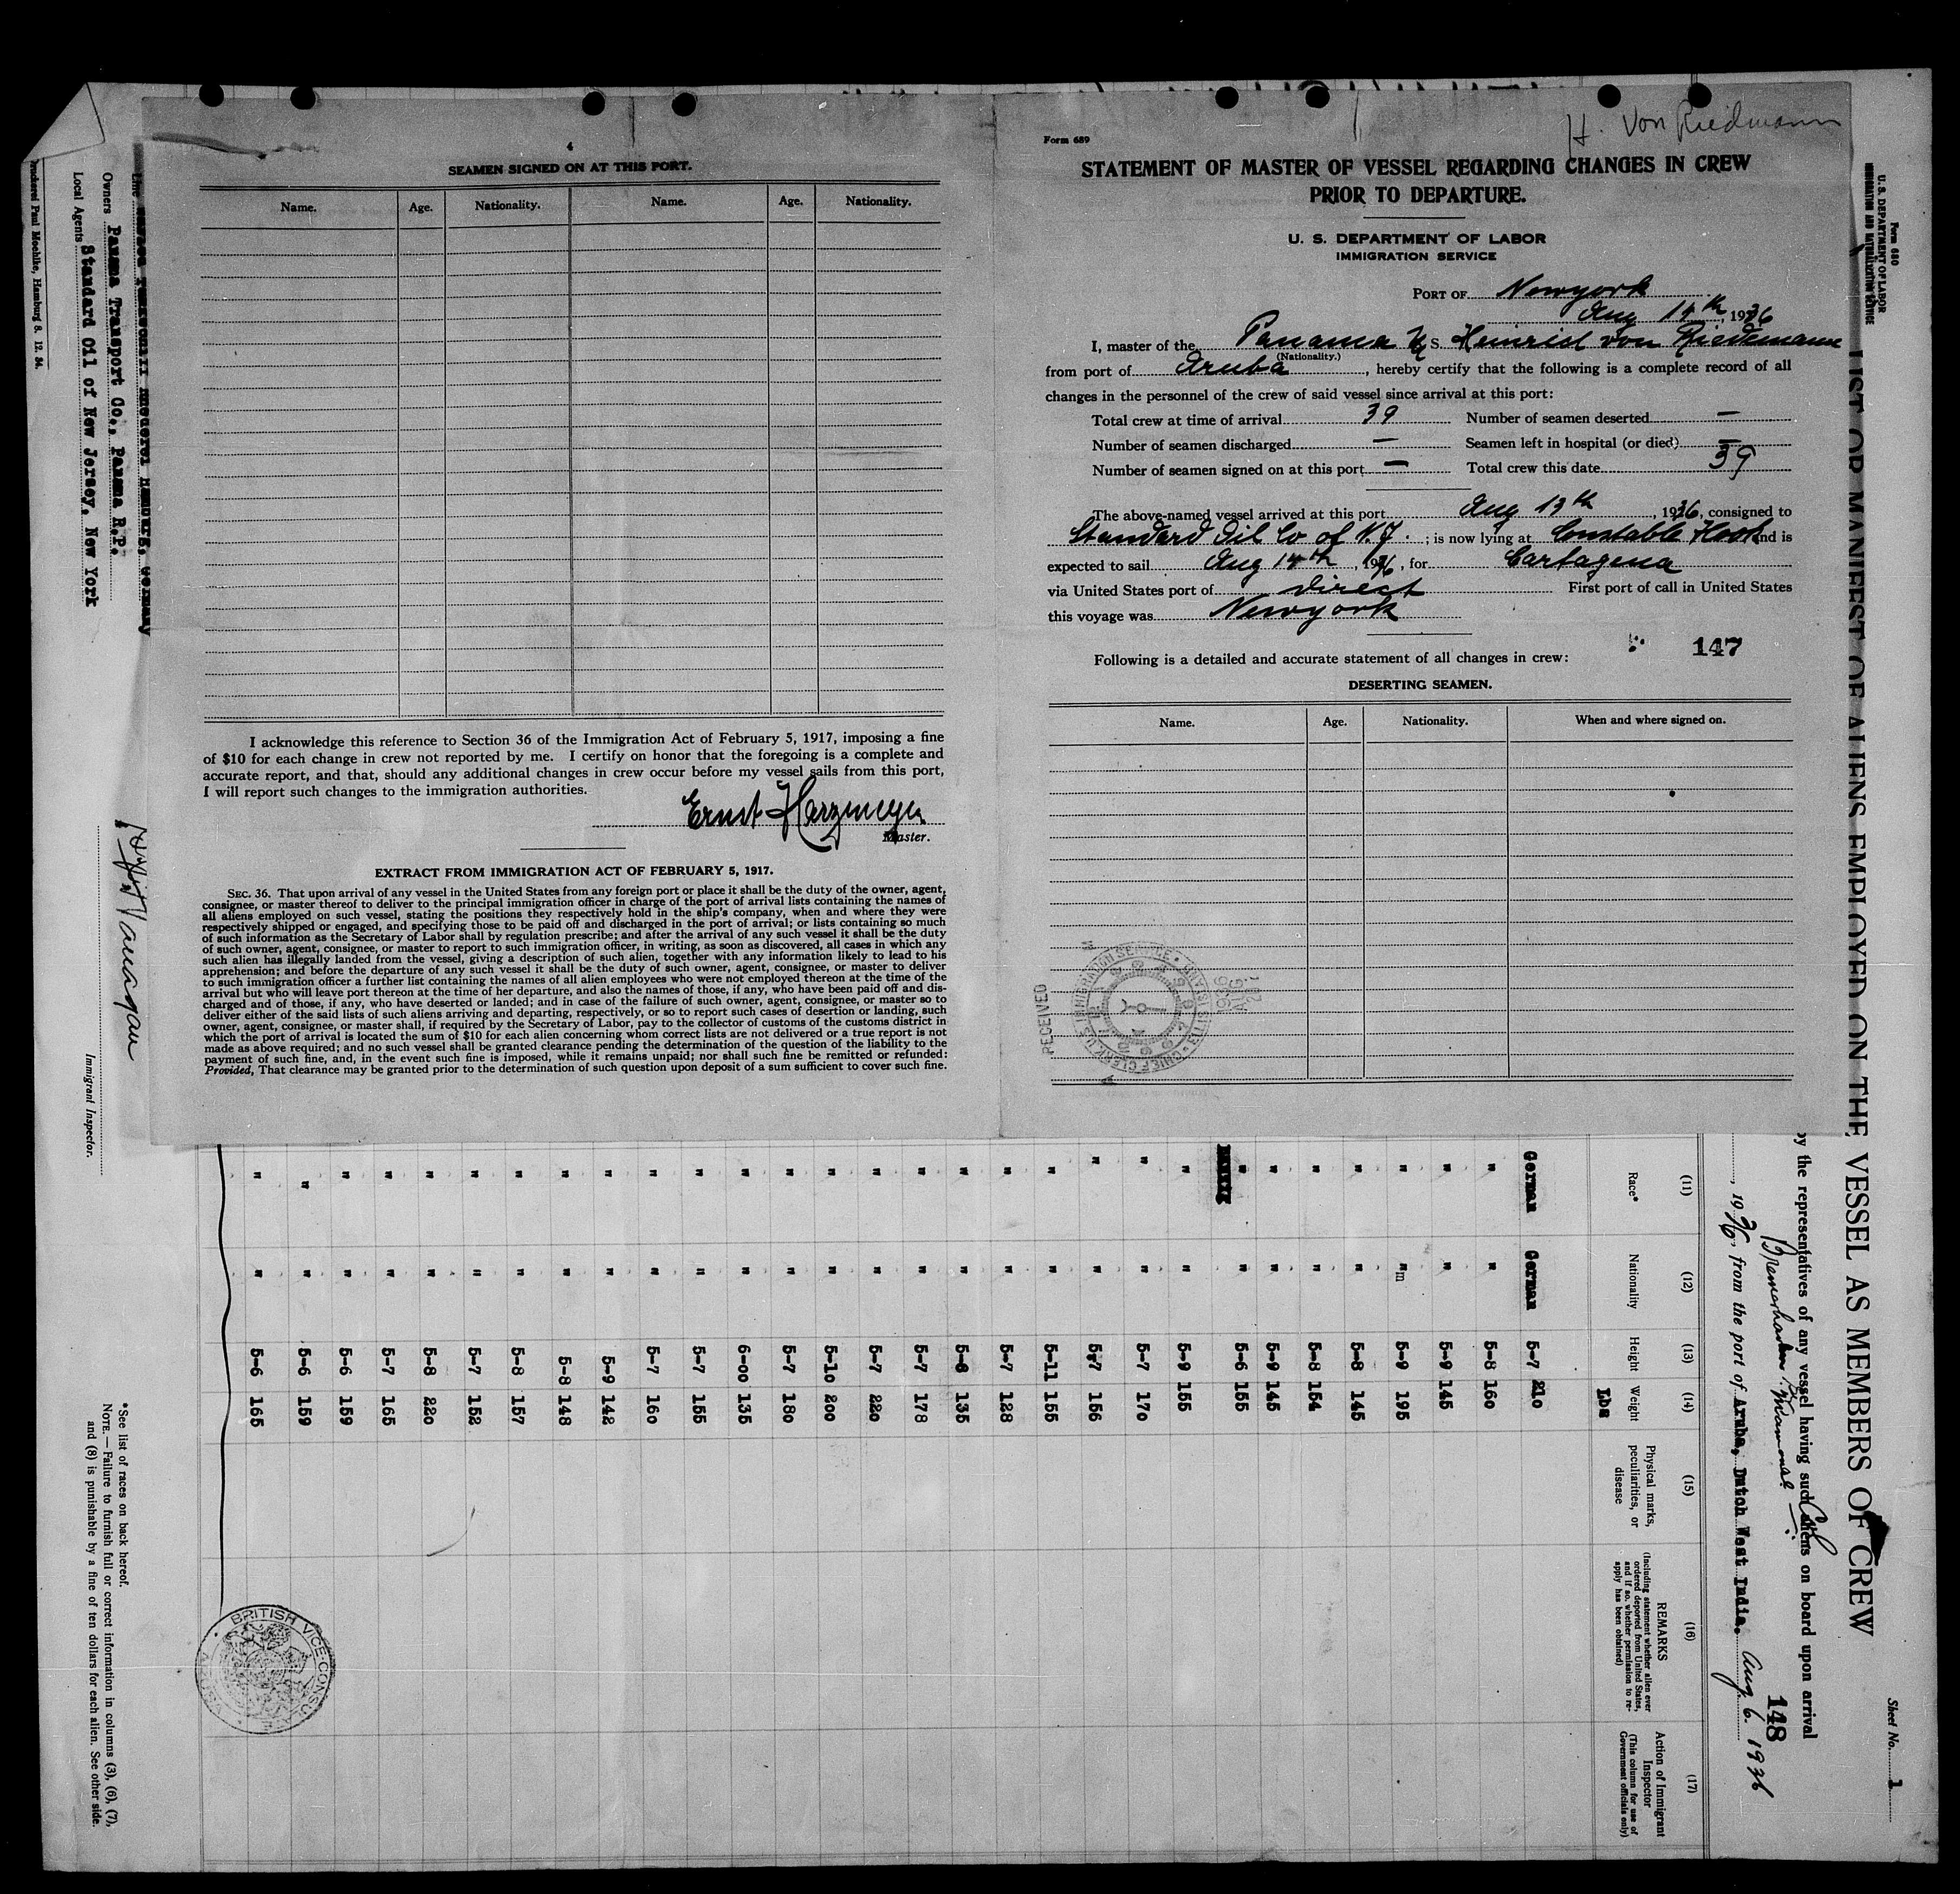 4
SEAMEN SIGNED ON AT THIS PORT.
Name. Age. Nationality. Name. Age. Nationality.
I acknowledge this reference to Section 36 of the Immigration Act of February 5, 1917, imposing a fine
of $10 for each change in crew not reported by me. I certify on honor that the foregoing is a complete and
accurate report, and that, should any additional changes in crew occur before my vessel sails from this port,
I will report such changes to the immigration authorities.
Ernst Harzmeyer
Master.
EXTRACT FROM IMMIGRATION ACT OF FEBRUARY 5, 1917.
SEC. 36. That upon arrival of any vessel in the United States from any foreign port or place it shall be the duty of the owner, agent,
consignee, or master thereof to deliver to the principal immigration officer in charge of the port of arrival lists containing the names of
all aliens employed on such vessel, stating the positions they respectively hold in the ship's company, when and where they were
respectively shipped or engaged, and specifying those to be paid off and discharged in the port of arrival; or lists containing so much
of such information as the Secretary of Labor shall by regulation prescribe; and after the arrival of any such vessel it shall be the duty
of such owner, agent, consignee, or master to report to such immigration officer, in writing, as soon as discovered, all cases in which any
such alien has illegally landed from the vessel, giving a description of such alien, together with any information likely to lead to his
apprehension; and before the departure of any such vessel it shall be the duty of such owner, agent, consignee, or master to deliver
to such immigration officer a further list containing the names of all alien employees who were not employed thereon at the time of the
arrival but who will leave port thereon at the time of her departure, and also the names of those, if any, who have been paid off and dis-
charged and of those, if any, who have deserted or landed; and in case of the failure of such owner, agent, consignee, or master so to
deliver either of the said lists of such aliens arriving and departing, respectively, or so to report such cases of desertion or landing, such
owner, agent, consignee, or master shall, if required by the Secretary of Labor, pay to the collector of customs of the customs district in
which the port of arrival is located the sum of $10 for each alien concerning whom correct lists are not delivered or a true report is not
made as above required; and no such vessel shall be granted clearance pending the determination of the question of the liability to the
payment of such fine, and, in the event such fine is imposed, while it remains unpaid; nor shall such fine be remitted or refunded:
Provided, That clearance may be granted prior to the determination of such question upon deposit of a sum sufficient to cover such fine.
H. Von Riedmann
Form 689
STATEMENT OF MASTER OF VESSEL REGARDING CHANGES IN CREW
PRIOR TO DEPARTURE.
U. S. DEPARTMENT OF LABOR
IMMIGRATION SERVICE
PORT OF Newyork
Aug 14th, 1936
I, master of the Panama S. Heinrich von Riedemann
(Nationality.)
from port of Aruba, hereby certify that the following is a complete record of all
changes in the personnel of the crew of said vessel since arrival at this port:
Total crew at time of arrival 39 Number of seamen deserted —
Number of seamen discharged — Seamen left in hospital (or died) —
Number of seamen signed on at this port — Total crew this date 39
The above-named vessel arrived at this port Aug 13th, 1936, consigned to
Standard Oil Co of N.J. ; is now lying at Constable Hook and is
expected to sail Aug 14th, 1936, for Cartagena
via United States port of direct First port of call in United States
this voyage was Newyork
147
Following is a detailed and accurate statement of all changes in crew:
DESERTING SEAMEN.
Name. Age. Nationality. When and where signed on.
RECEIVED
Form 680
U. S. DEPARTMENT OF LABOR
IMMIGRATION AND NATURALIZATION SERVICE
Sheet No. 1
LIST OR MANIFEST OF ALIENS EMPLOYED ON THE VESSEL AS MEMBERS OF CREW
by the representatives of any vessel having such aliens on board upon arrival
148
Bremerhaven
, 1936, from the port of Aruba, Dutch West India, Aug. 6. 1936
(11) (12) (13) (14) (15) (16) (17)
Race* Nationality Height Weight Physical marks, peculiarities, or disease REMARKS (Including statement whether alien ever ordered deported from United States, and if so, whether permission to re-apply has been obtained) Action of Immigrant Inspector (This column for use of Government officials only)
Lbs
German German 5-7 210
" " 5-8 160
" " 5-9 145
" "m 5-9 195
" " 5-8 145
" " 5-8 154
" " 5-9 145
" " 5-6 155
" " 5-9 155
" " 5-7 170
" " 5-7 156
" " 5-11 155
" " 5-7 128
" " 5-8 135
" " 5-7 178
" " 5-7 220
" " 5-10 200
" " 5-7 180
" " 6-00 135
" " 5-7 155
" " 5-7 160
" " 5-9 142
" " 5-8 148
" " 5-8 157
" " 5-7 152
" " 5-8 220
" " 5-7 165
" " 5-6 159
" " 5-6 159
" " 5-6 165
BRITISH VICE-CONSUL
Hamburg, Germany
Owners Panama Transport Co., Panama R.P.
Local Agents Standard Oil of New Jersey, New York
Immigrant Inspector.
*See list of races on back hereof.
NOTE.—Failure to furnish full or correct information in columns (3), (6), (7),
and (8) is punishable by a fine of ten dollars for each alien. See other side.
Paul Moehlke, Hamburg 8. 12. 34.